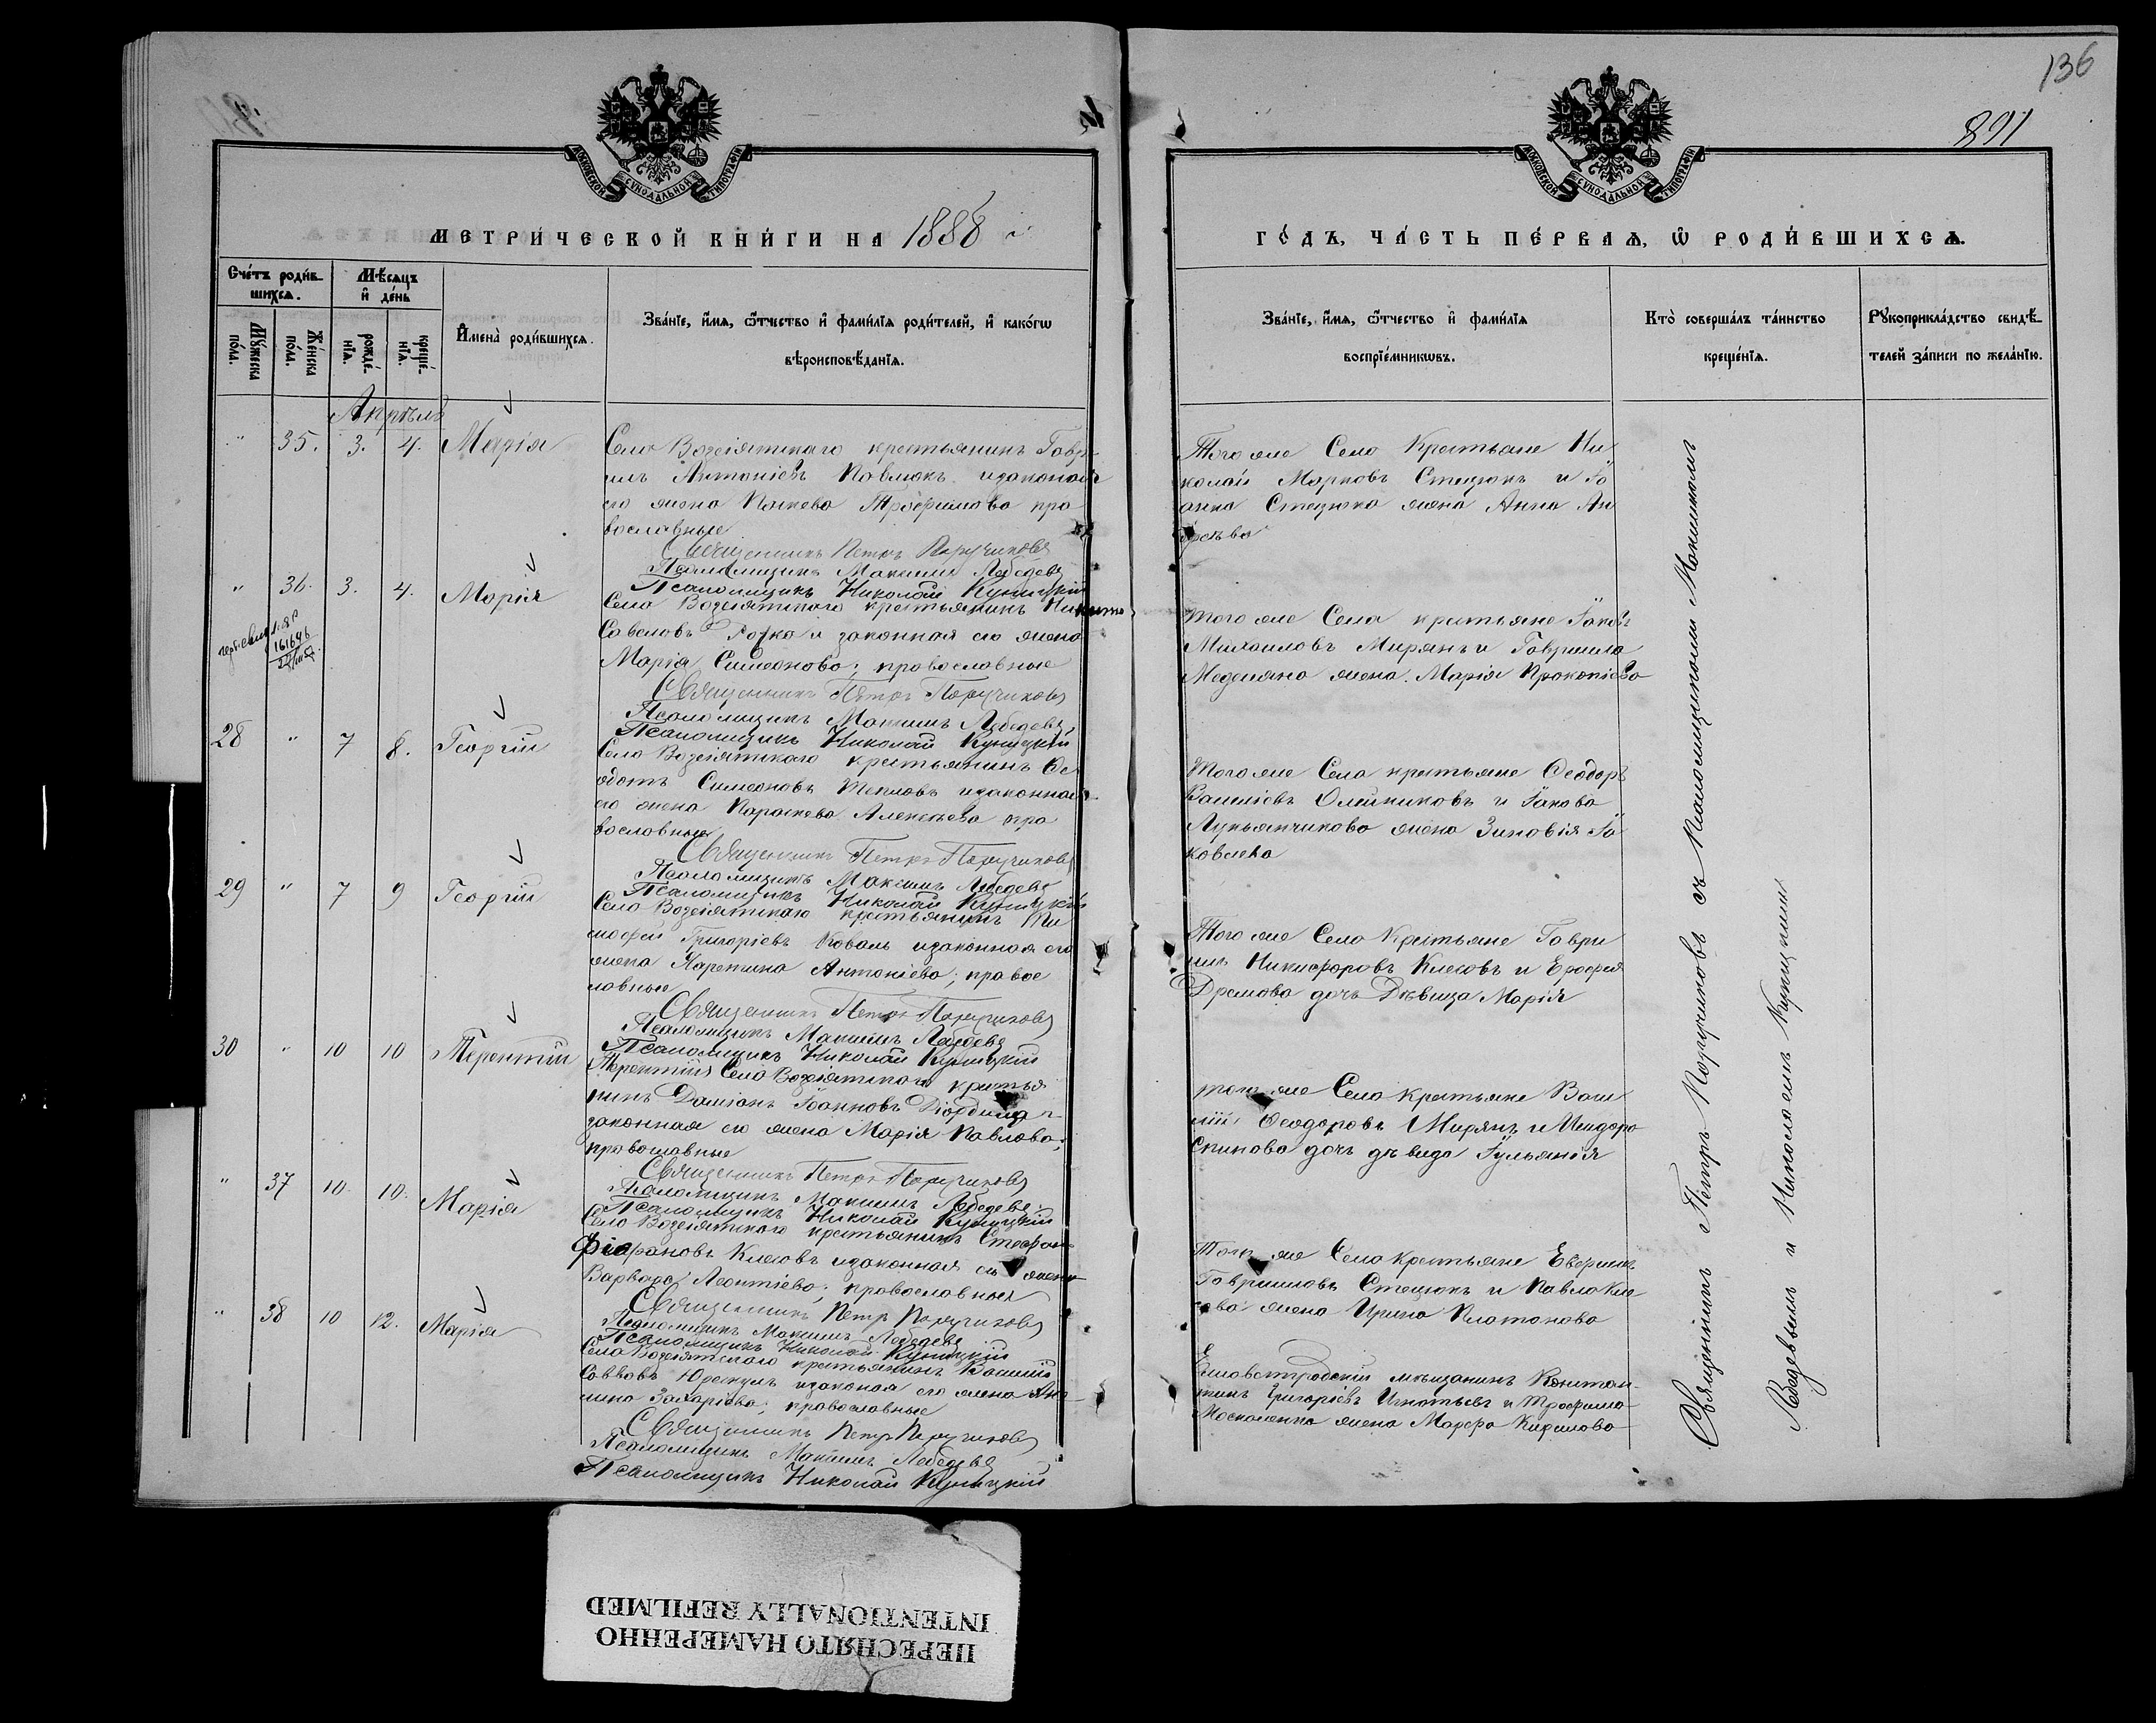 136
891
МОСКОВСКОЙ СУНОДАЛЬНОЙ ТИПОГРАФІИ
МОСКОВСКОЙ СУНОДАЛЬНОЙ ТИПОГРАФІИ
МЕТРИ́ЧЕСКОЙ КНИ́ГИ НА 1888
ГО́ДЪ, ЧА́СТЬ ПЕ́РВАѦ, Ѿ РОДИ́ВШИХСѦ.
Сче́тъ роди́в-
шихсѧ.
Мѣ́сяцъ
и҆ де́нь
Мꙋ́жеска
по́ла.
Же́нска
по́ла.
рожде́-
нїѧ.
креще́-
нїѧ.
И҆мена̀ роди́вшихсѧ.
Зва́нїе, и҆́мѧ, ѻ҆́тчество и҆ фами́лїѧ роди́телей, и҆ како́гѡ
вѣроисповѣ́данїѧ.
Зва́нїе, и҆́мѧ, ѻ҆́тчество и҆ фами́лїѧ
воспрїе́мникѡвъ.
Кто̀ соверша́лъ та́инство
креще́нїѧ.
Рꙋкоприкла́дство свидѣ́-
телей за́писи по жела́нїю.
Апрѣль
" 35. 3. 4. Марія
Села Возсіятскаго крестьянинъ Гавр-
илъ Антоніевъ Павлюкъ изаконная
его жена Паскева Трофимова пра
вославные
Священникъ Петръ Поручиковъ
Псаломщикъ Максимъ Лебедевъ
Псаломщикъ Николай Куницкій
Того же Села Крестьяне Ни
колай Марковъ Стецюкъ и Іо
анна Стецюка жена Анна Ан
дреева
" 36. 3. 4. Марія
161646
Села Возсіятскаго крестьянинъ Никита
Савеловъ и законная его жена
Марія Симеонова; православные
Священникъ Петръ Поручиковъ
Псаломщикъ Максимъ Лебедевъ
Псаломщикъ Николай Куницкій
того же Села крестьяне Іаковъ
Михаиловъ Мирянъ и Гавриила
жена Марія Прокопіева
28 " 7 8. Георгій
Села Возсіятскаго крестьянинъ Ѳе
одотъ Симеоновъ Тепловъ изаконная
его жена Параскева Алексѣева пра
вославные
Священникъ Петръ Поручиковъ
Псаломщикъ Максимъ Лебедевъ
Псаломщикъ Николай Куницкій
Того же Села крестьяне Ѳеодоръ
Василіевъ Олейниковъ и Іакова
Лукьянчикова жена Зиновія Іа
ковлева
29 " 7 9 Георгій
Села Возсіятскаго крестьянинъ Ти
моѳей Григоріевъ Коваль изаконная его
жена Харитина Антоніева; правос
лавные
Священникъ Петръ Поручиковъ
Псаломщикъ Максимъ Лебедевъ
Псаломщикъ Николай Куницкій
Того же Села Крестьяне Гаври
илъ Никифоровъ Клековъ и Ерофея
Дремова дочь Дѣвица Марія
30 " 10 10 Терентій
Терентій Села Возсіятскаго крестья
нинъ Даміанъ Іоанновъ и
законная его жена Марія Павлова;
православные
Священникъ Петръ Поручиковъ
Псаломщикъ Максимъ Лебедевъ
Псаломщикъ Николай Куницкій
того же Села крестьяне Васи
лій Ѳеодоровъ Мирянъ и Исидора
дочь дѣвица Іульянія
" 37 10. 10. Марія
Села Возсіятскаго крестьянинъ Стефан
Клековъ изаконная его жена
Варвара Леонтіева; православные
Священникъ Петръ Поручиковъ
Псаломщикъ Максимъ Лебедевъ
Псаломщикъ Николай Куницкій
Того же Села крестьяне
Гаврииловъ Стецюкъ и Павла Кле
кова жена Ирина Платонова
" 38 10 12. Марія
Села Возсіятскаго крестьянинъ Василій
Савковъ изаконая его жена
Захаріева; православные
Священникъ Петръ Поручиковъ
Псаломщикъ Максимъ Лебедевъ
Псаломщикъ Николай Куницкій
Елисаветградскій мѣщанинъ Констан-
тинъ Григоріевъ Игнатьевъ и Трофима
Москаленка жена Марфа Кирилова
Священникъ Петръ Поручиковъ съ Псаломщикомъ Максимомъ
Лебедевымъ и Николаемъ Куницкимъ
ПЕРЕСНЯТО НАМЕРЕННО
INTENTIONALLY REFILMED